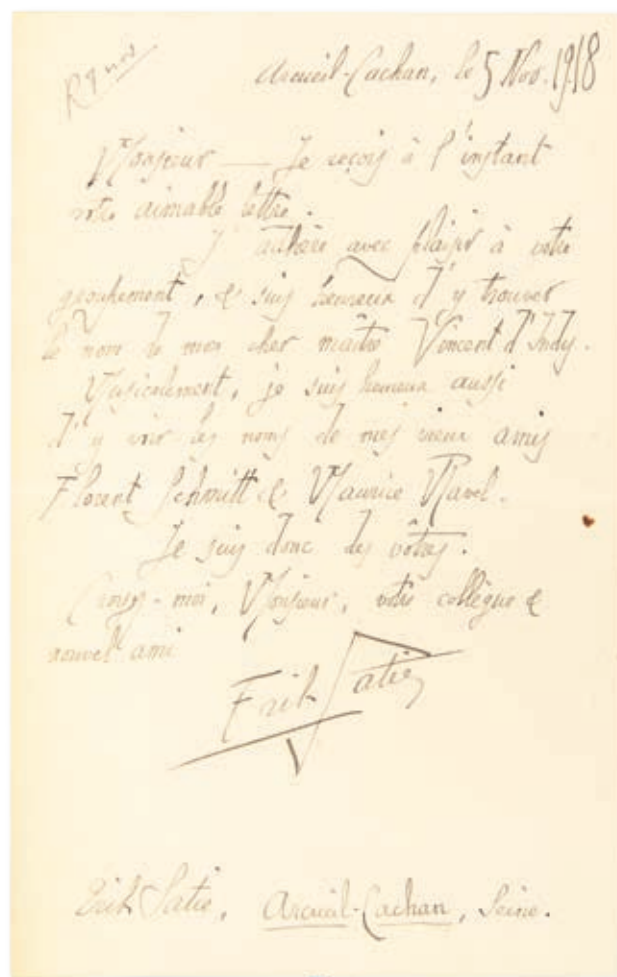 R 7 nov
Arcueil-Cachan, le 5 Nov. 1918
Monsieur — Je reçois à l'instant
votre aimable lettre.
J'adhère avec plaisir à votre
groupement, & suis heureux d'y trouver
le nom de mon cher maître Vincent d'Indy.
Musicalement, je suis heureux aussi
d'y voir les noms de mes vieux amis
Florent Schmitt & Maurice Ravel.
Je suis donc des vôtres.
Croyez-moi, Monsieur, votre collègue &
nouvel ami
Erik Satie
Erik Satie, Arcueil-Cachan, Seine.